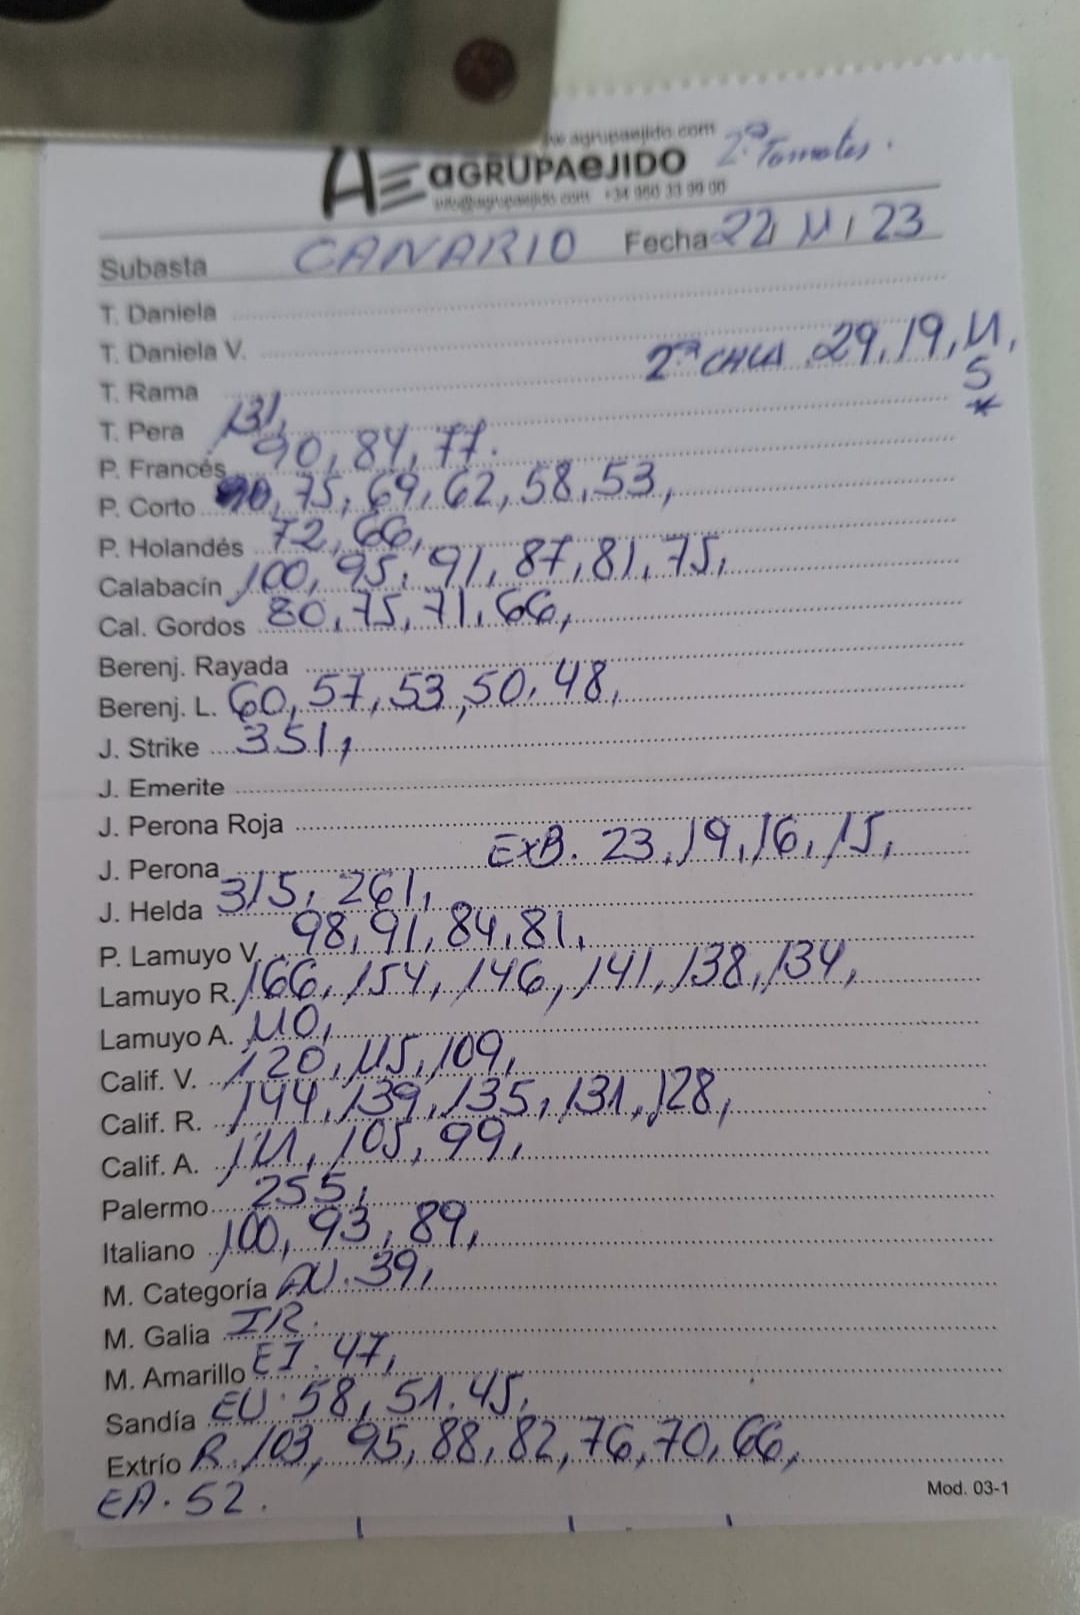 agrupaejido.com
AE aGRUPAeJIDO 2ª Tomates.
info@agrupaejido.com +34 950 33 99 00
Subasta CANARIO Fecha 22/11/23
T. Daniela
T. Daniela V.
2ª CHCA 29, 19, 11,
T. Rama
5
*
T. Pera 131,
P. Francés 90, 84, 77.
P. Corto 75, 69, 62, 58, 53,
P. Holandés 72, 66,
Calabacín 100, 95, 91, 87, 81, 75,
Cal. Gordos 80, 75, 71, 66,
Berenj. Rayada
Berenj. L. 60, 57, 53, 50, 48,
J. Strike 351,
J. Emerite
J. Perona Roja
J. Perona EXB. 23, 19, 16, 15,
J. Helda 315, 261,
P. Lamuyo V. 98, 91, 84, 81,
Lamuyo R. 166, 154, 146, 141, 138, 134,
Lamuyo A. 110,
Calif. V. 120, 115, 109,
Calif. R. 144, 139, 135, 131, 128,
Calif. A. 111, 105, 99,
Palermo 255,
Italiano 100, 93, 89,
M. Categoría AV. 39,
M. Galia IR.
M. Amarillo EI. 47,
Sandía EU. 58, 51. 45,
Extrío R. 103, 95, 88, 82, 76, 70, 66,
EA. 52.
Mod. 03-1